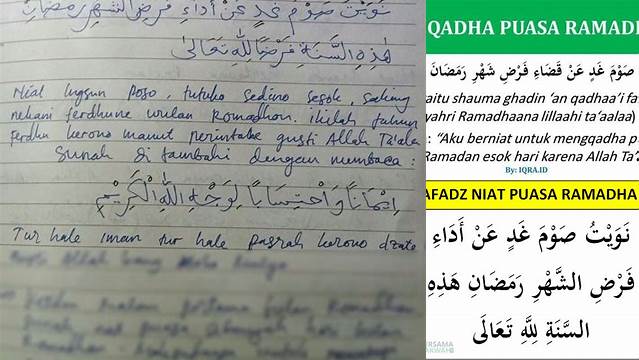 نَوَيْتُ صَوْمَ غَدٍ عَنْ أَدَاءِ فَرْضِ الشَّهْرِ رَمَضَانَ
هٰذِهِ السَّنَةِ فَرْضًا لِلّٰهِ تَعَالَى
Niat Ingsun Poso, tutuko sedino sesok, saking
nekani ferdhune wulan Romadhon. ikilah tahun
ferdhu kerono manut perintahe gusti Allah Ta'ala
Sunah di tambahi dengan membaca :
اِيْمَانًا وَاحْتِسَابًا لِوَجْهِ اللّٰهِ الْكَرِيْمِ
Tur hale iman tur hale pasrah kerono dzate
QADHA PUASA RAMAD
صَوْمَ غَدٍ عَنْ قَضَاءِ فَرْضِ شَهْرِ رَمَضَانَ
aitu shauma ghadin 'an qadhaa'i fa
yahri Ramadhaana lillaahi ta'aalaa)
: "Aku berniat untuk mengqadha p
Ramadan esok hari karena Allah Ta'
By: IQRA.ID
AFADZ NIAT PUASA RAMADHA
نَوَيْتُ صَوْمَ غَدٍ عَنْ أَدَاءِ
فَرْضِ الشَّهْرِ رَمَضَانِ هَذِهِ
السَّنَةِ لِلَّهِ تَعَالَى
ERSAMA
AKWAH